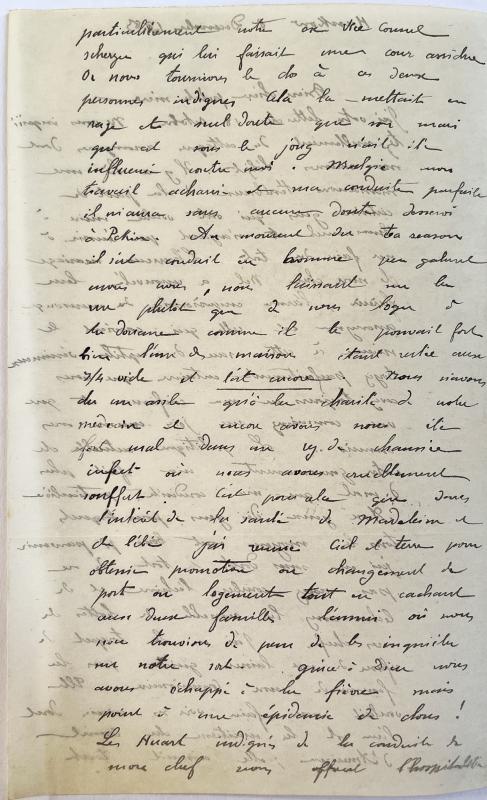 particulièrement notre ex Vice Consul
scherzer qui lui faisait une cour assidue
Or nous tournions le dos à ces deux
personnes indignes Cela la mettait en
rage et nul doute que son mari
qui vivait sous le joug n'ait été
influencé contre moi. Malgré mon
travail acharné et ma conduite parfaite
il m'aura sans aucun doute desservi
à Pékin. Au moment du tea season
il s'est conduit en homme peu galant
envers nous, nous laissant sur la
rue plutôt que de nous loger à
la douane comme il le pouvait fort
bien l'une des maisons étant restée aux
3/4 vide et l'est encore. Nous n'avons
dû un asile qu'à la charité de notre
médecin et encore avons nous été
fort mal dans un rez de chaussée
infect où nous avons cruellement
souffert. C'est pour cela que dans
l'intérêt de la santé de Madeleine et
de bébé j'ai remué ciel et terre pour
obtenir promotion ou changement de
port ou logement tout en cachant
aux deux familles l'ennui où nous
nous trouvions de peur de les inquiéter
sur notre sort. grâce à dieu nous
avons échappé à la fièvre mais
point à une épidémie de clous!
Les Huart indignés de la conduite de
mon chef nous offrent l'hospitalité